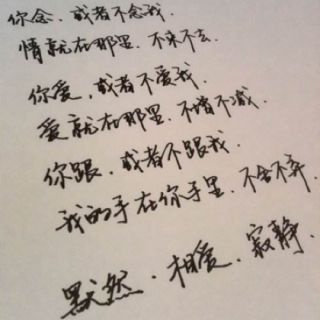 你念，或者不念我，
情就在那里，不来不去，
你爱，或者不爱我，
爱就在那里，不增不减，
你跟，或者不跟我，
我的手在你手里，不舍不弃，
默然，相爱，寂静，